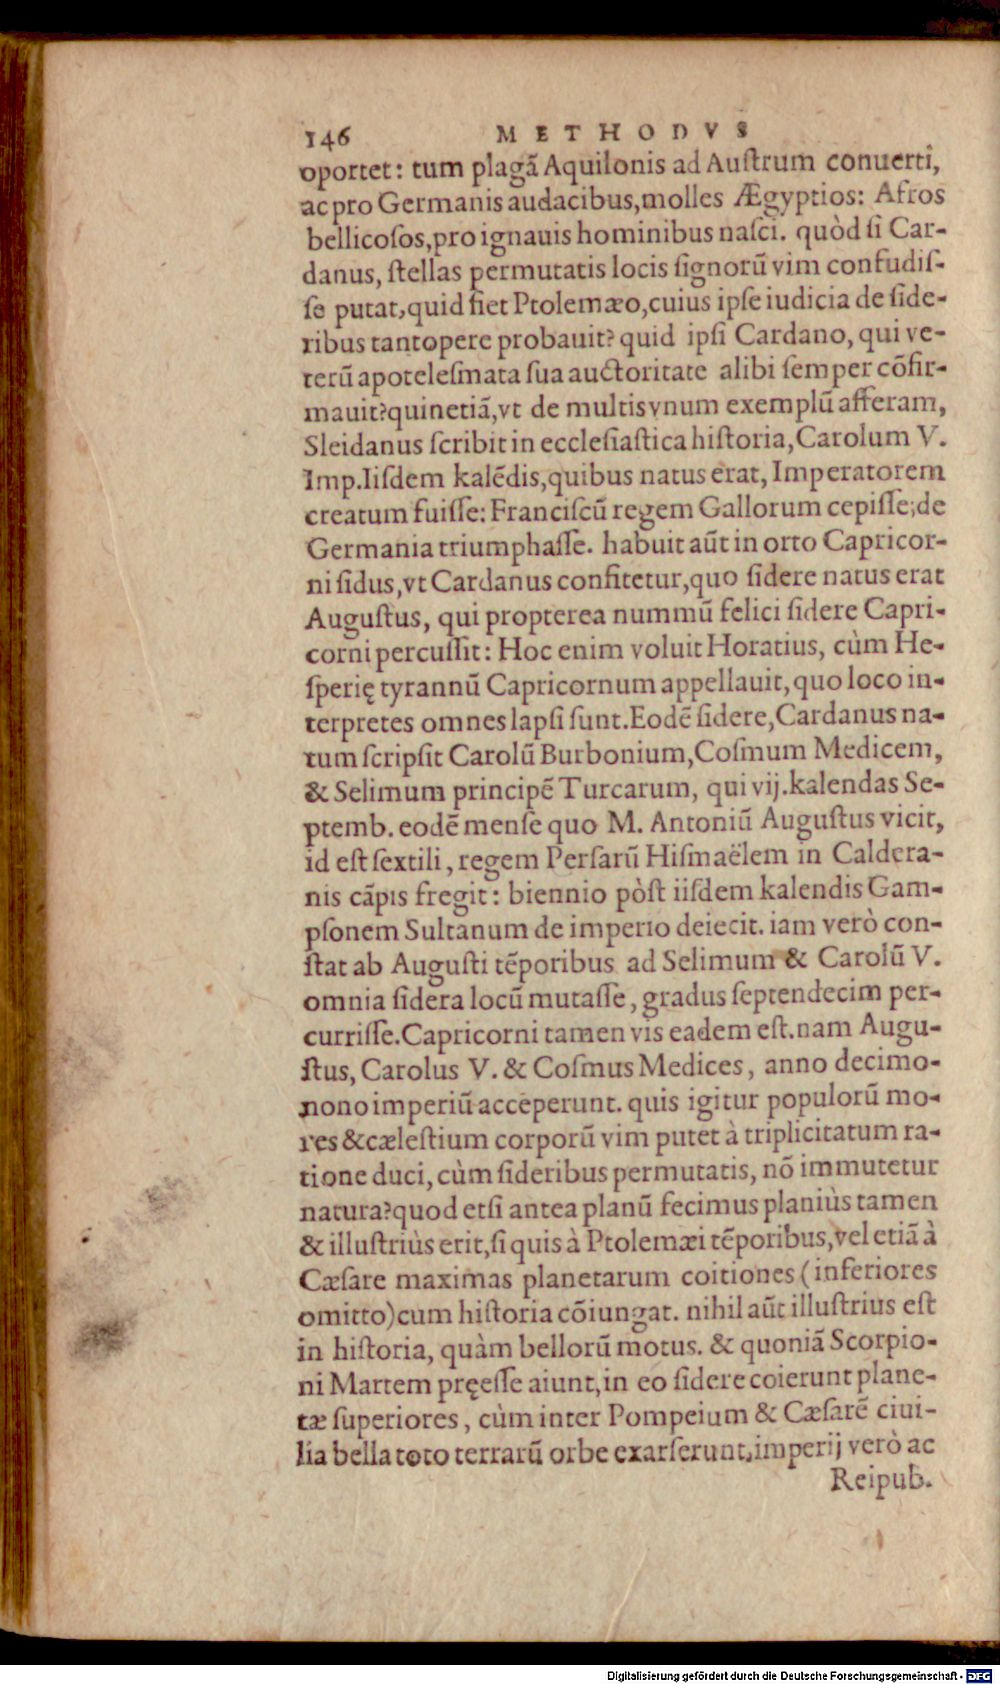 146 METHODVS
oportet: tum plagã Aquilonis ad Auſtrum conuerti,
ac pro Germanis audacibus, molles Ægyptios: Afros
bellicoſos, pro ignauis hominibus naſci. quòd ſi Car-
danus, ſtellas permutatis locis ſignorũ vim confudiſ-
ſe putat, quid fiet Ptolemæo, cuius ipſe iudicia de ſide-
ribus tantopere probauit? quid ipſi Cardano, qui ve-
terũ apoteleſmata ſua auctoritate alibi ſemper cõfir-
mauit? quinetiã, vt de multis vnum exemplũ afferam,
Sleidanus ſcribit in eccleſiaſtica hiſtoria, Carolum V.
Imp. Iiſdem kalẽdis, quibus natus erat, Imperatorem
creatum fuiſſe: Franciſcũ regem Gallorum cepiſſe; de
Germania triumphaſſe. habuit aũt in orto Capricor-
ni ſidus, vt Cardanus confitetur, quo ſidere natus erat
Auguſtus, qui propterea nummũ felici ſidere Capri-
corni percuſſit: Hoc enim voluit Horatius, cùm He-
ſperię tyrannũ Capricornum appellauit, quo loco in-
terpretes omnes lapſi ſunt. Eodẽ ſidere, Cardanus na-
tum ſcripſit Carolũ Burbonium, Coſmum Medicem,
& Selimum principẽ Turcarum, qui vij. kalendas Se-
ptemb. eodẽ menſe quo M. Antoniũ Auguſtus vicit,
id eſt ſextili, regem Perſarũ Hiſmaëlem in Caldera-
nis cãpis fregit: biennio pòſt iiſdem kalendis Gam-
pſonem Sultanum de imperio deiecit. iam verò con-
ſtat ab Auguſti tẽporibus ad Selimum & Carolũ V.
omnia ſidera locũ mutaſſe, gradus ſeptendecim per-
curriſſe. Capricorni tamen vis eadem eſt. nam Augu-
ſtus, Carolus V. & Coſmus Medices, anno decimo-
nono imperiũ acceperunt. quis igitur populorũ mo-
res & cæleſtium corporũ vim putet à triplicitatum ra-
tione duci, cùm ſideribus permutatis, nõ immutetur
natura? quod etſi antea planũ fecimus planiùs tamen
& illuſtriùs erit, ſi quis à Ptolemæi tẽporibus, vel etiã à
Cæſare maximas planetarum coitiones (inferiores
omitto) cum hiſtoria cõiungat. nihil aũt illuſtrius eſt
in hiſtoria, quàm bellorũ motus. & quoniã Scorpio-
ni Martem pręeſſe aiunt, in eo ſidere coierunt plane-
tæ ſuperiores, cùm inter Pompeium & Cæſarẽ ciui-
lia bella toto terrarũ orbe exarſerunt, imperij verò ac
Reipub.
Digitalisierung gefördert durch die Deutsche Forschungsgemeinschaft - DFG